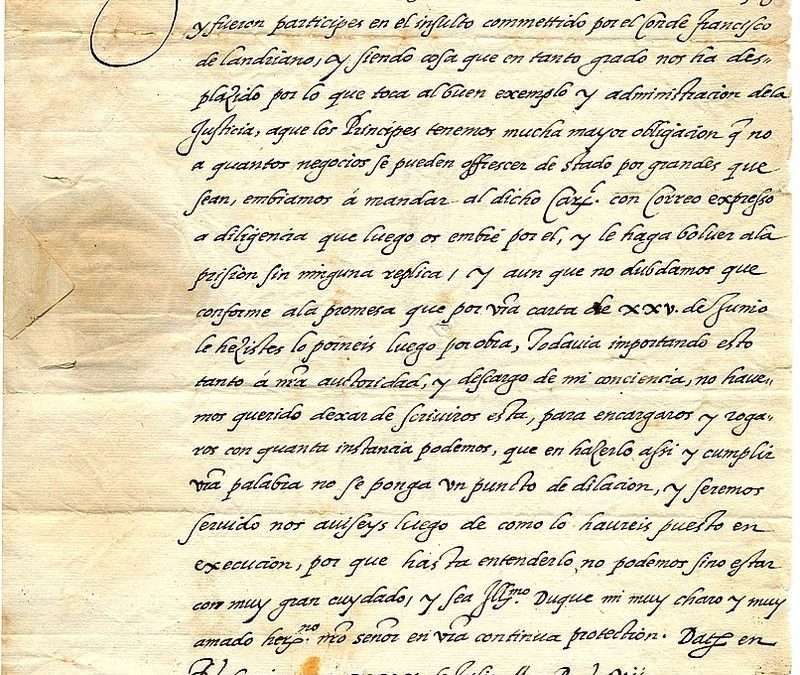 y fueron participes en el insulto commettido por el Conde francisco
de landriano, y siendo cosa que en tanto grado nos ha des-
plazido por lo que toca al buen exemplo y administracion dela
Justicia, aque los Principes teneremos mucha mayor obligacion q̃ no
a quantos negocios se pueden offrescer de stado por grandes que
sean, embiamos á mandar al dicho Car.ˡ con Correo expresso
a diligencia que luego os embie por el, y le haga bolver ala
prision sin ninguna replica, y aun que no dubdamos que
conforme ala promesa que por vr̃a carta de xxv. de Junio
le hezistes lo porneis luego por obra, Todavia importando esto
tanto á nr̃a auctoridad, y descargo de mi conciencia, no have-
mos querido dexar de scriviros esta, para encargaros y roga-
ros con quanta instancia podemos, que en hazerlo assi y cumplir
vr̃a palabra no se ponga un puncto de dilacion, y seremos
servido nos aviseys luego de como lo haureis puesto en
execucion, por que hasta entenderlo no podemos sino estar
con muy gran cuydado, y sea Ill.ᵐᵒ Duque mi muy charo y muy
amado her.ⁿᵒ nr̃o señor en vr̃a continua protection. Dat̃ en